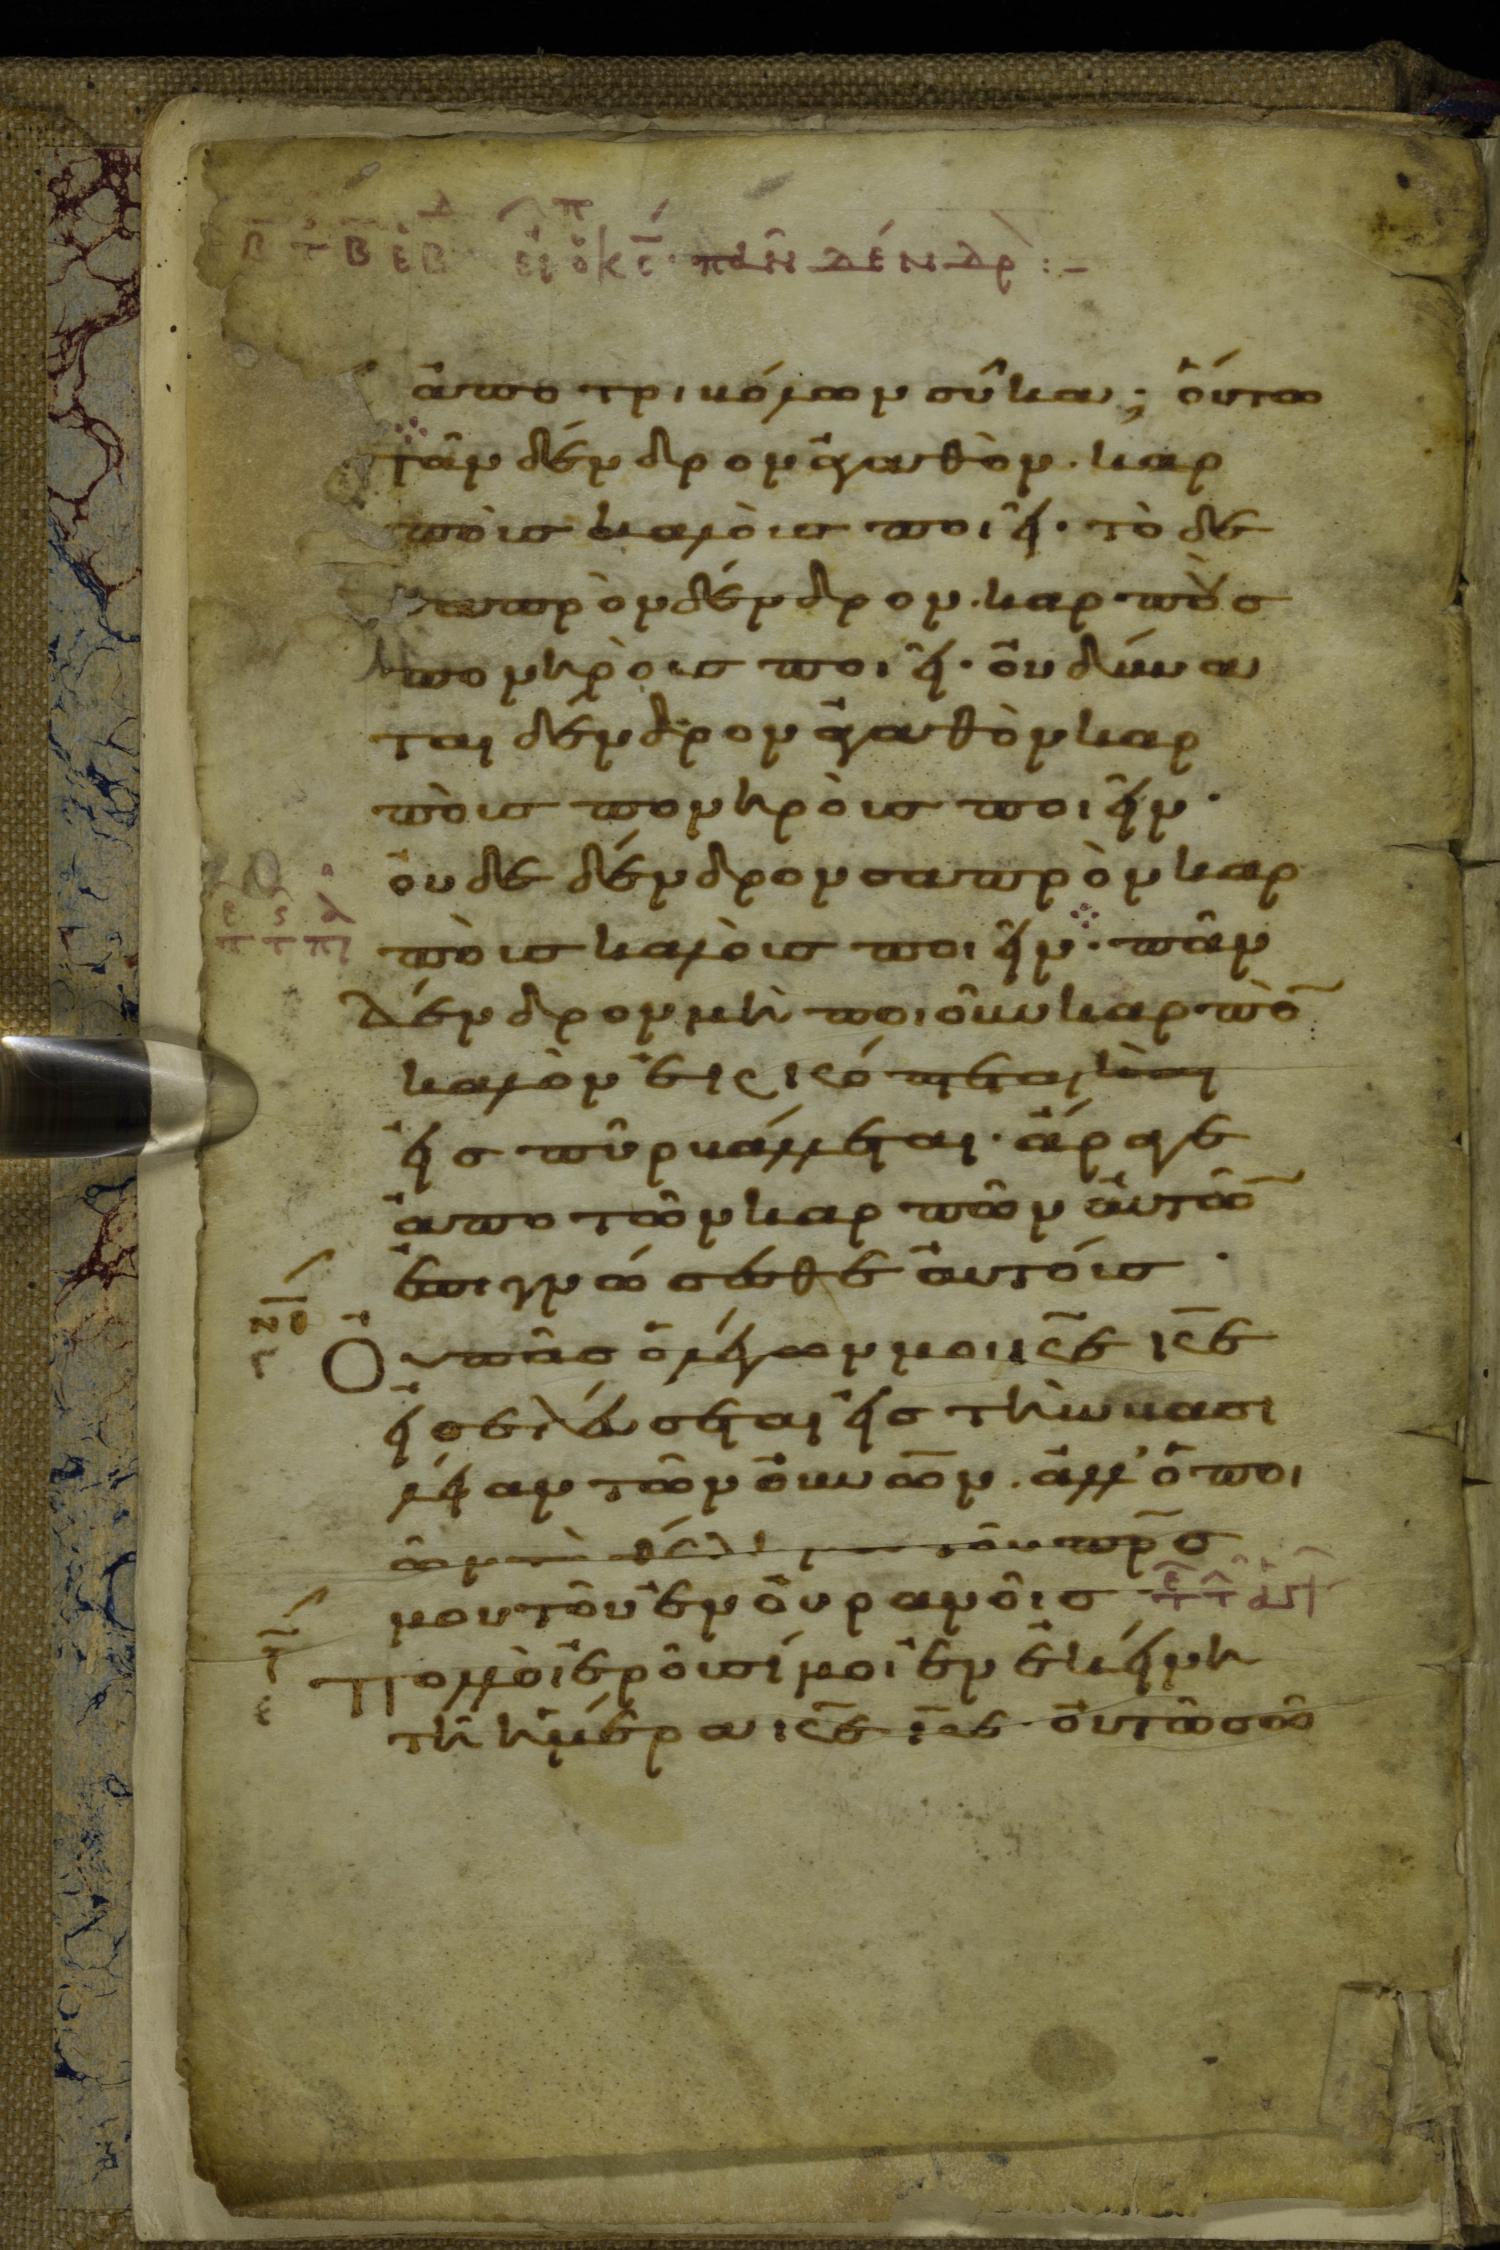 εἶπεν ὁ κς· πᾶν δένδρ :-
ἀπο τριβόλων σῦκα; ὅυτω
πᾶν δένδρον ἀγαθὸν. καρ
ποὺσ καλοὺσ ποιεῖ· τὸ δε
σαπρὸν δένδρον. καρποὺσ
πονηροὺσ ποιεῖ· οὐ δύνα
ται δένδρον ἀγαθὸν καρ
ποὺσ πονηροὺσ ποιεῖν·
οὐδε δένδρον σαπρὸν καρ
ποὺσ καλοὺσ ποιεῖν· πᾶν
δένδρον μὴ ποιοῦν καρπὸ
καλὸν ἐκκόπτεται καὶ
εἰσ πῦρ βάλλεται· ἄραγε
ἀπο τῶν καρπῶν ἀυτῶ
ἐπιγνώσεσθε ἀυτούσ·
Ου πᾶσ ὁ λέγων μοι κε κε
εἰσελεύσεται εἰσ τὴν βασι
λείαν τῶν οὐνῶν. ἀλλ' ὁ ποι
ῶν τὸ θέλημα τοῦ πρσ
μου τοῦ ἐν οὐρανοῖσ
Πολλοὶ ἐροῦσί μοι ἐν ἐκείνη
τῆ ἡμέρα κε κε· οὐ τῶ σῶ